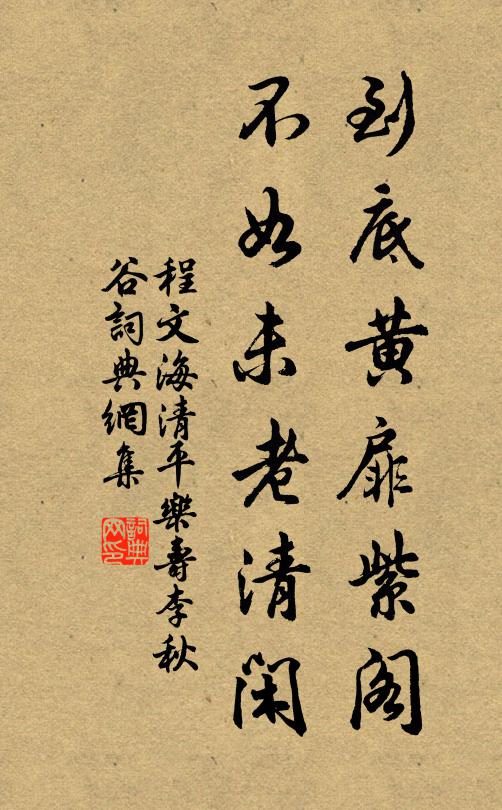 到底黄扉紫阁
不如未老清闲
程文海清平樂壽李秋
谷詞典網集
詞典
网印